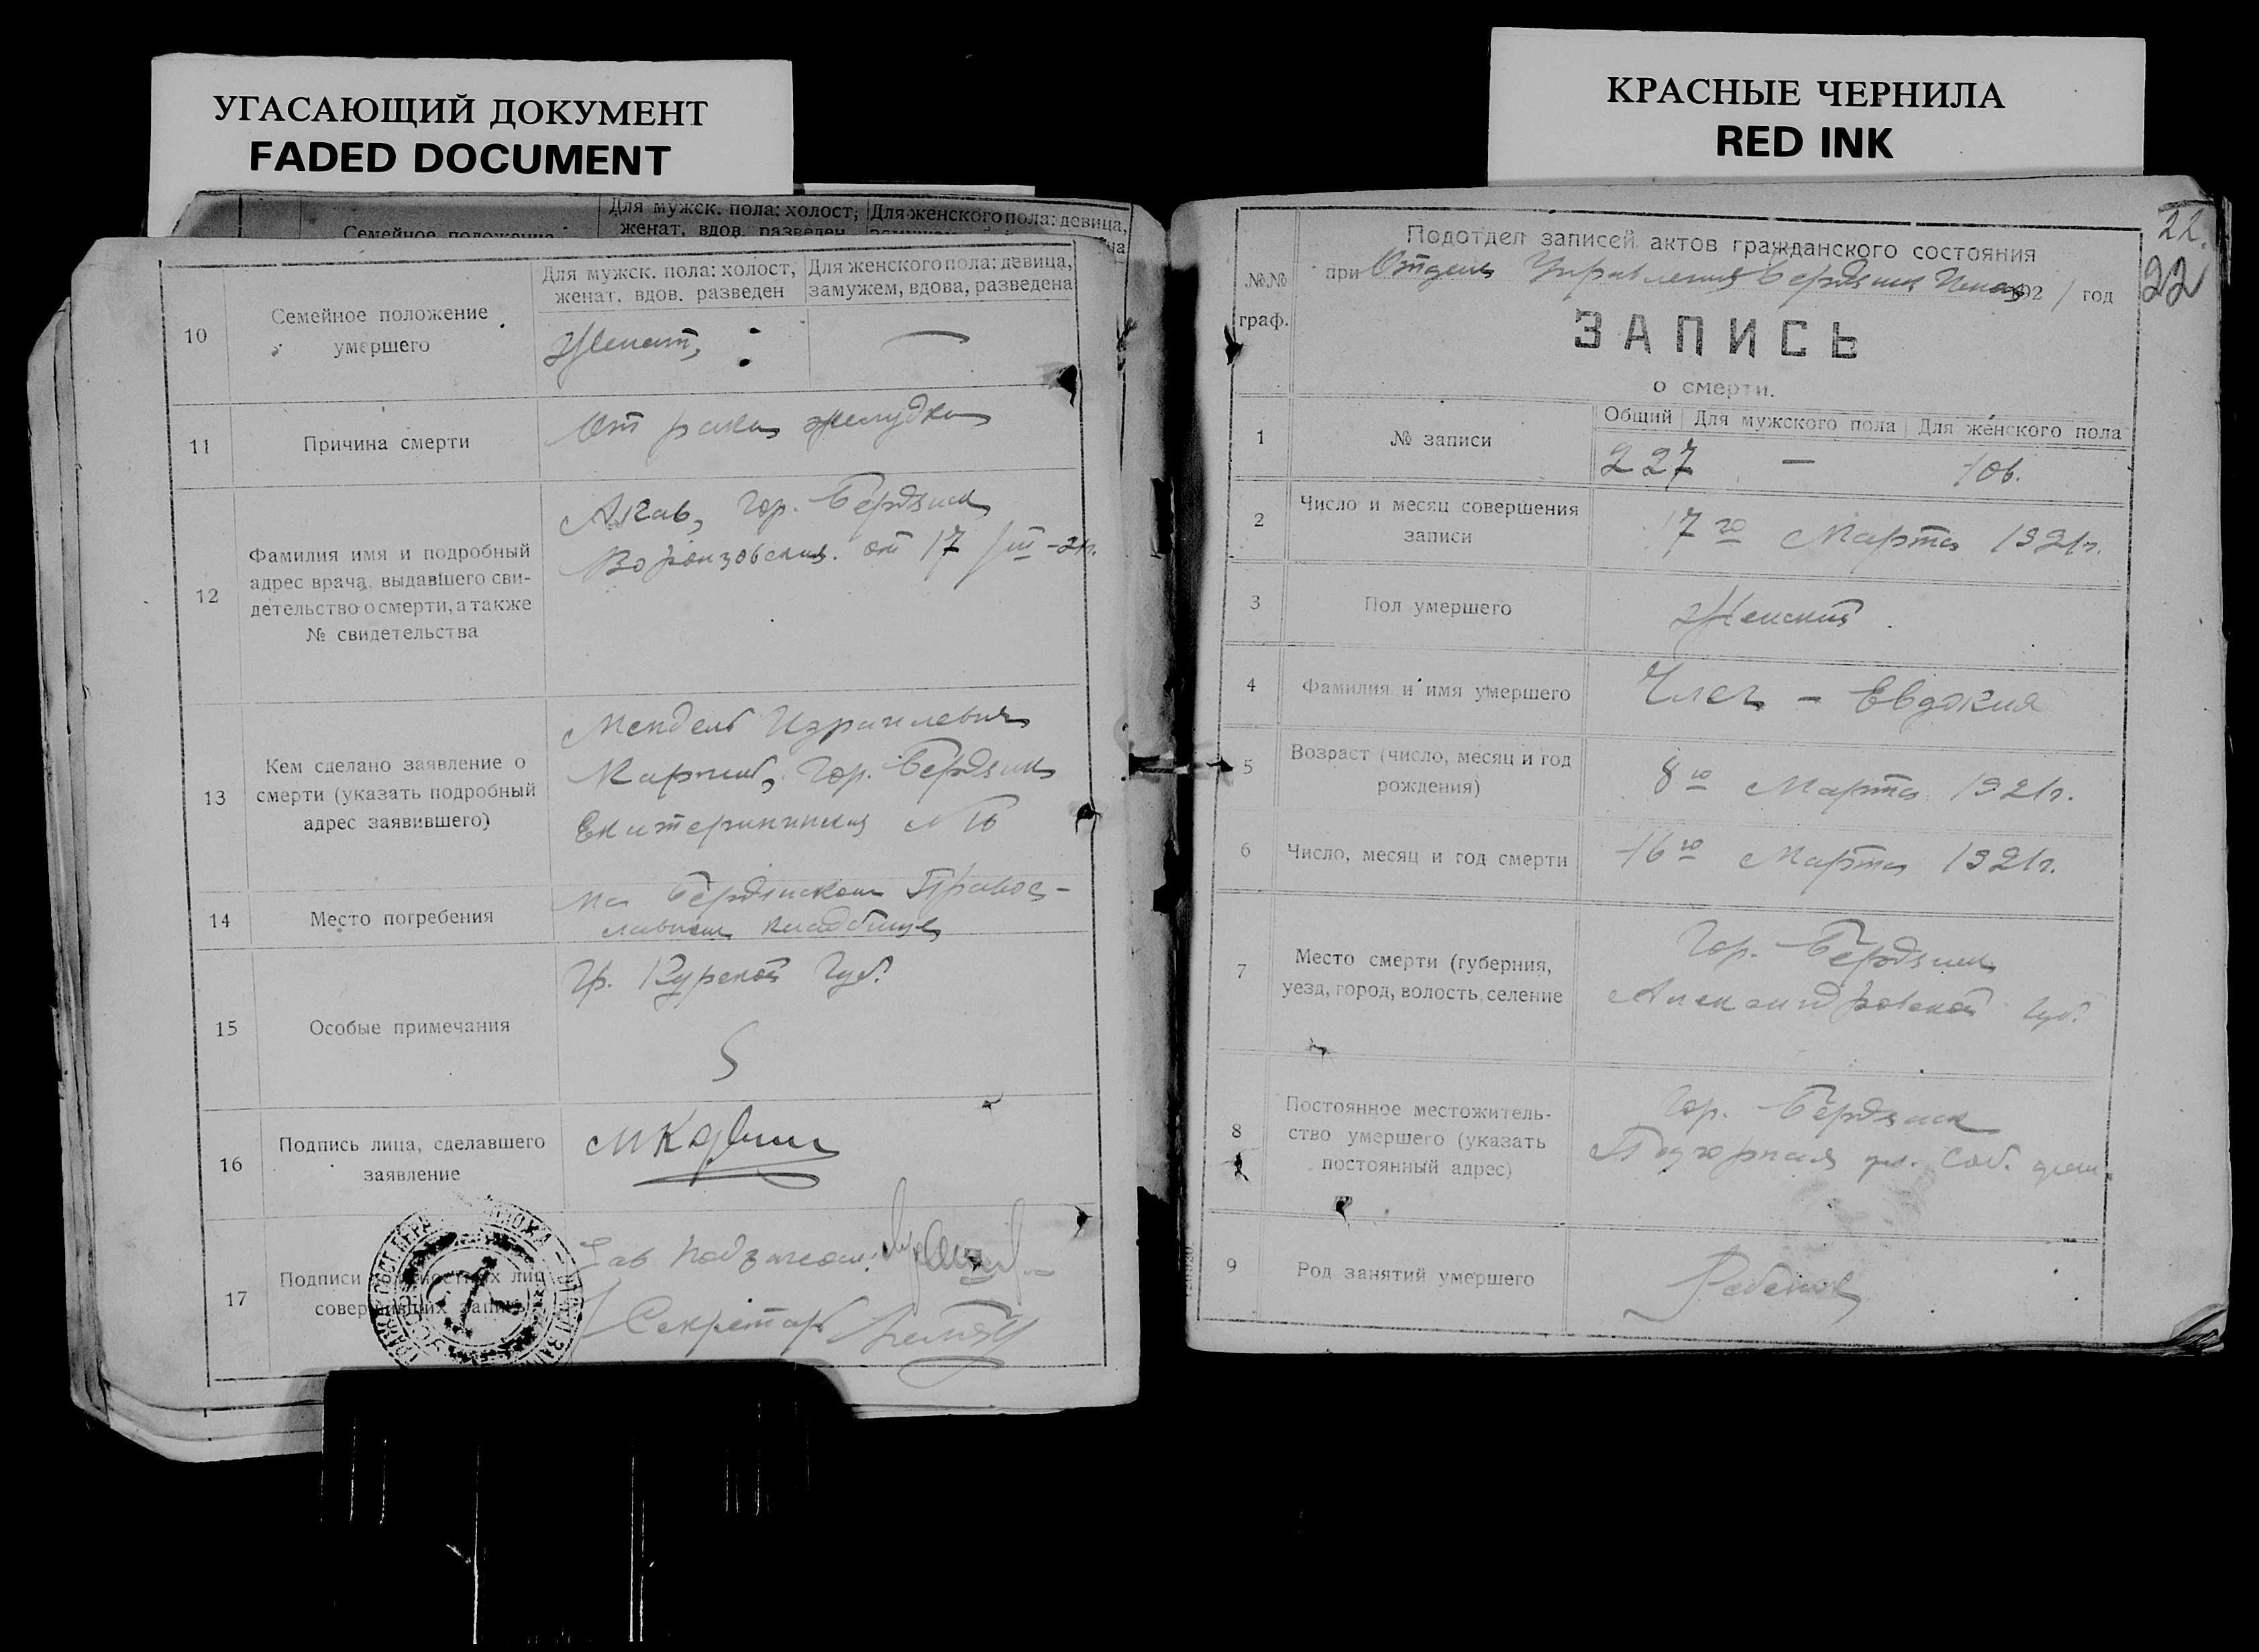 УГАСАЮЩИЙ ДОКУМЕНТ
FADED DOCUMENT
КРАСНЫЕ ЧЕРНИЛА
RED INK
Семейное положение
Для мужск. пола: холост,
женат, вдов. разведен
Для женского пола: девица,
10
Семейное положение
умершего
Для мужск. пола: холост,
женат, вдов. разведен
Для женского пола: девица,
замужем, вдова, разведена
Женат,
—
11
Причина смерти
От рака желудка
12
Фамилия имя и подробный
адрес врача, выдавшего сви-
детельство о смерти, а также
№ свидетельства
гор. Бердянск
Воронцовская. от 17/III-21г.
13
Кем сделано заявление о
смерти (указать подробный
адрес заявившего)
Мендель Израилевич
гор. Бердянск
Екатерининская №
14
Место погребения
на Бердянском Правос-
лавном кладбище
15
Особые примечания
Гр. Курской Губ.
16
Подпись лица, сделавшего
заявление
17
Подписи должностных лиц
совершивших запись
Зав
Секретарь
22.
22
№№
граф.
Подотдел записей актов гражданского состояния
при Отделе Управления Бердянск 1921 год
ЗАПИСЬ
о смерти.
1
№ записи
Общий
Для мужского пола
Для женского пола
227
—
106.
2
Число и месяц совершения
записи
17го Марта 1921г.
3
Пол умершего
Женский
4
Фамилия и имя умершего
– Евдокия
5
Возраст (число, месяц и год
рождения)
8го Марта 1921г.
6
Число, месяц и год смерти
16го Марта 1921г.
7
Место смерти (губерния,
уезд, город, волость, селение
Гор. Бердянск
Александровской Губ.
8
Постоянное местожитель-
ство умершего (указать
постоянный адрес)
Гор. Бердянск
Подгорная ул. Соб. дом.
9
Род занятий умершего
Ребенок